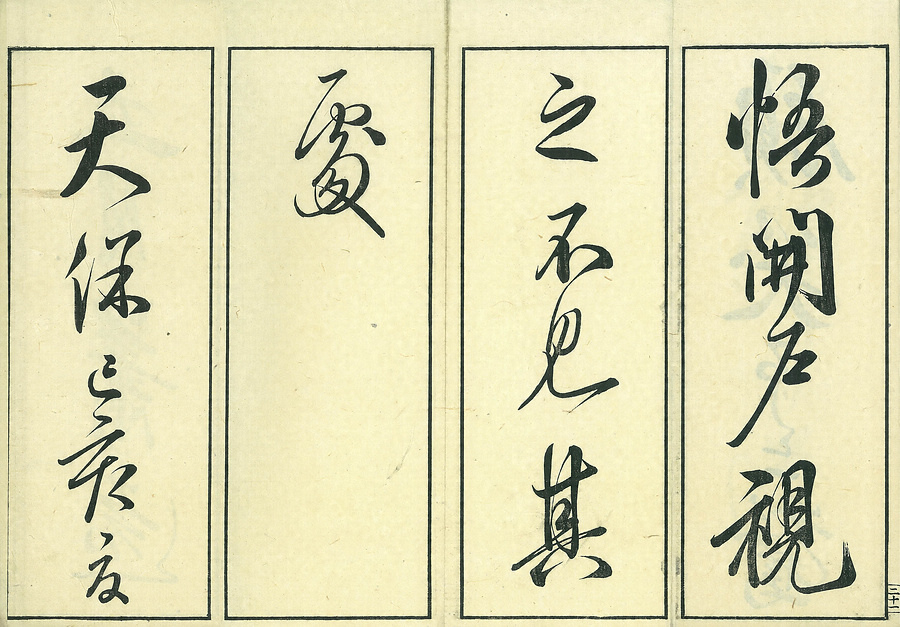 悟開戸視
之不見其
處
天保己亥夏
三十二